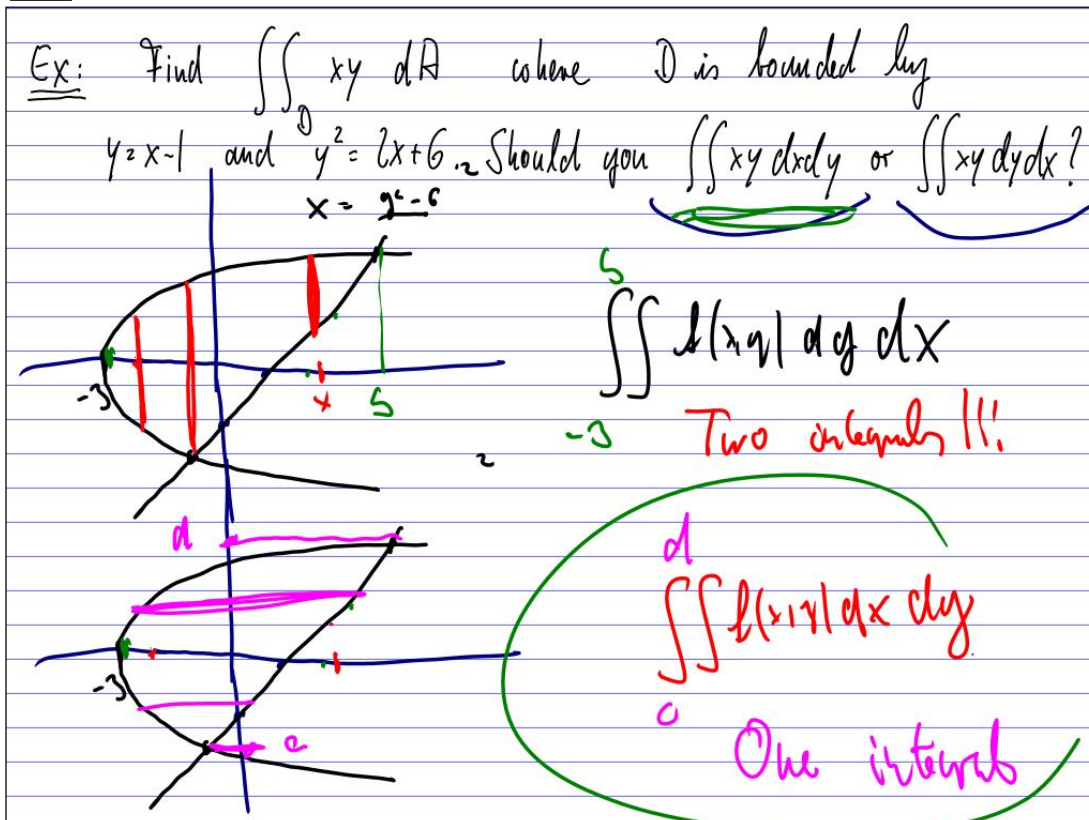 Ex: Find ∬_D xy dA where D is bounded by
y=x-1 and y² = 2x+6. Should you ∬ xy dxdy or ∬ xy dydx?
x = y²-6
2
5
∬ f(x,y) dy dx
-3
-3 x 5
Two integrals !!!
2
d
d
∬ f(x,y) dx dy
-3
c
c
One integral